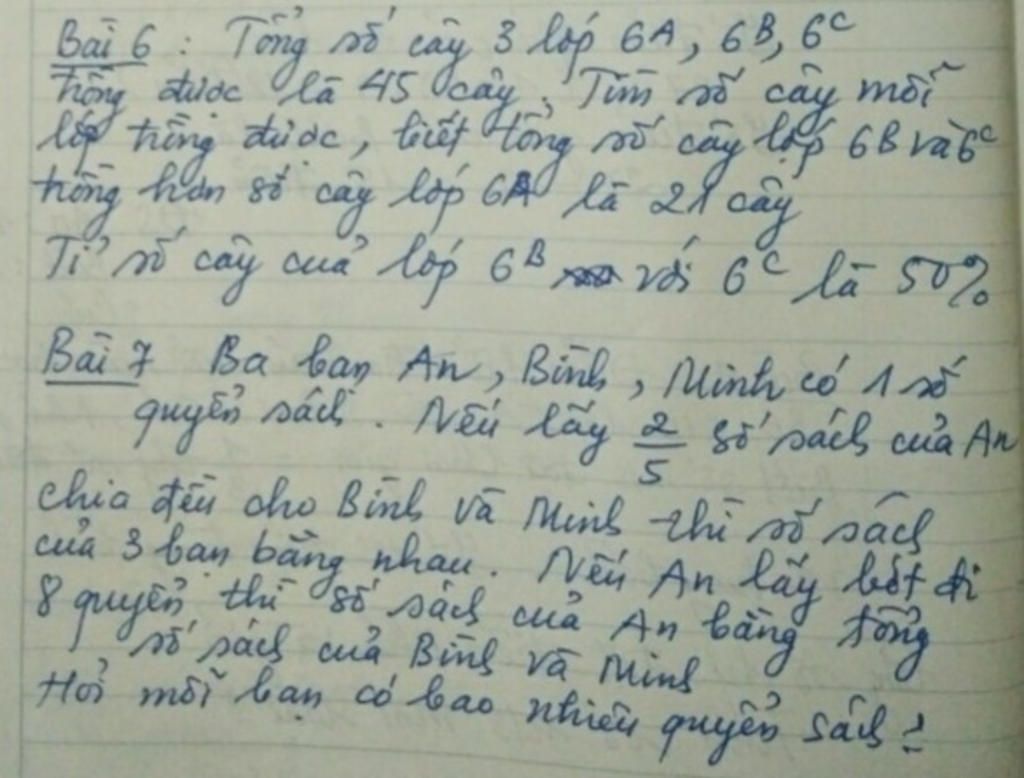 Bài 6 : Tổng số cây 3 lớp 6A, 6B, 6C
trồng được là 45 cây. Tìm số cây mỗi
lớp trồng được, biết tổng số cây lớp 6B và 6C
trồng hơn số cây lớp 6A là 21 cây
Tỉ số cây của lớp 6B với 6C là 50%
Bài 7 Ba bạn An, Bình, Minh có 1 số
quyển sách. Nếu lấy 2/5 số sách của An
chia đều cho Bình và Minh thì số sách
của 3 bạn bằng nhau. Nếu An lấy bớt đi
8 quyển thì số sách của An bằng tổng
số sách của Bình và Minh
Hỏi mỗi bạn có bao nhiêu quyển sách?